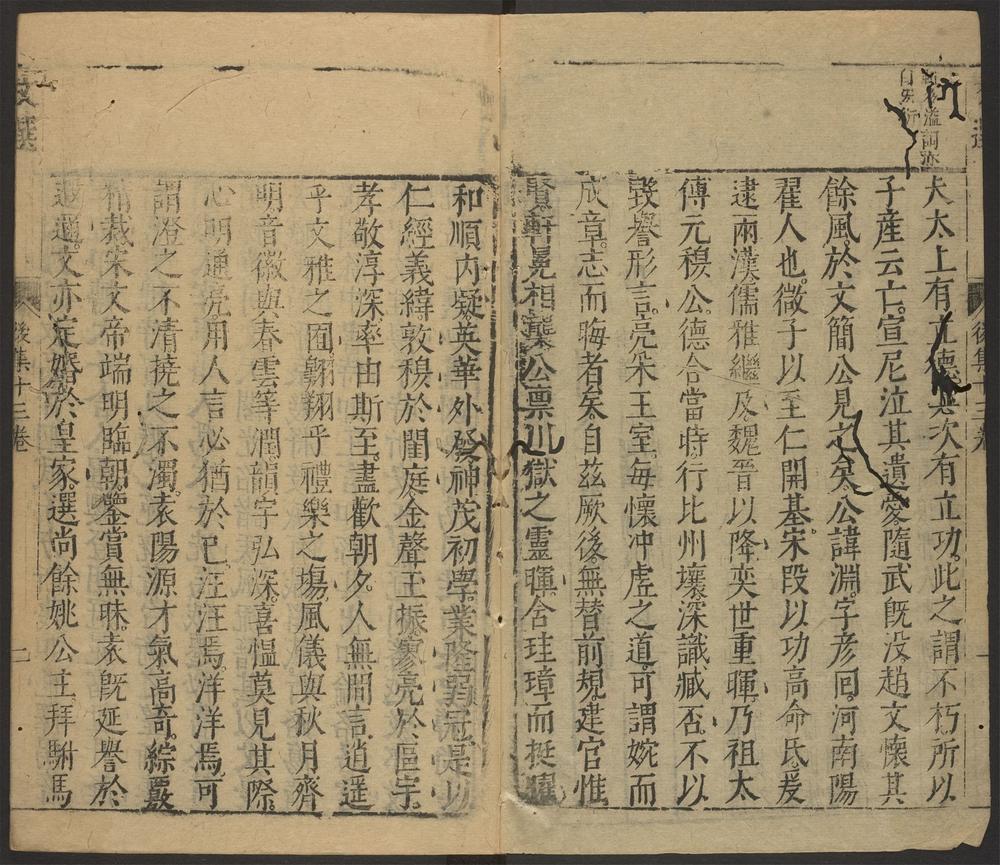 夫太上有立德其次有立功此之謂不朽所以
子產云亡宣尼泣其遺愛隨武既没趙文懷其
餘風於文簡公見之矣公諱淵字彥囘河南陽
翟人也微子以至仁開基宋段以功高命氏爰
逮兩漢儒雅繼及魏晉以降奕世重暉乃祖太
傅元穆公德合當時行比州壤深識臧否不以
毀譽形言亮采王室每懷冲虛之道可謂婉而
成章志而晦者矣自兹厥後無替前規建官惟
賢軒冕相襲公禀川嶽之靈暉含珪璋而挺曜
後集十三卷
和順内凝英華外發神茂初學業隆弱冠是以
仁經義緯敦穆於閨庭金聲玉振寥亮於區宇
孝敬淳深率由斯至盡歡朝夕人無間言逍遥
乎文雅之囿翱翔乎禮樂之場風儀與秋月齊
明音徽與春雲等潤韻宇弘深喜慍莫見其際
心明通亮用人言必猶於已汪汪焉洋洋焉可
謂澄之不清撓之不濁袁陽源才氣高奇綜覈
精裁宋文帝端明臨朝鑒賞無昧袁既延譽於
遐邇文亦定婚於皇家選尚餘姚公主拜駙馬
後集十三卷
二